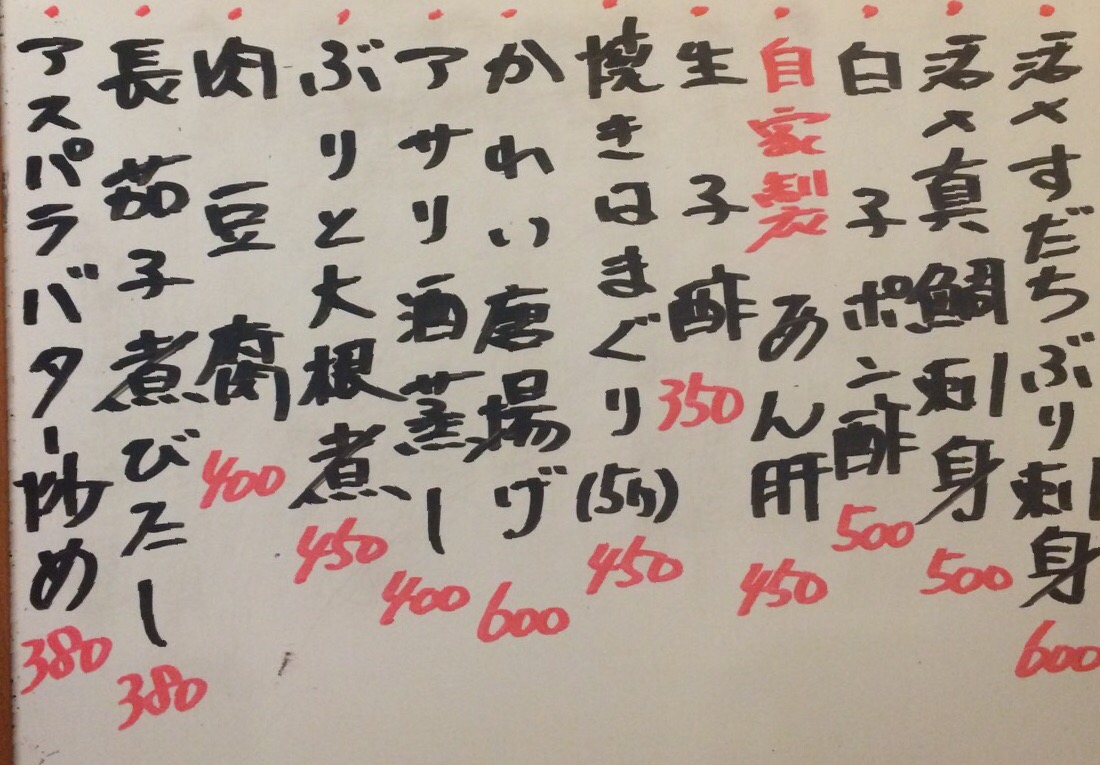 活〆すだちぶり刺身 600
活〆真鯛刺身 500
白子ポン酢 500
自家製 あん肝 450
生子酢 350
焼きはまぐり(5ヶ) 450
かれい唐揚げ 600
アサリ酒蒸し 400
ぶりと大根煮 450
肉豆腐 400
長茄子煮びたし 380
アスパラバター炒め 380